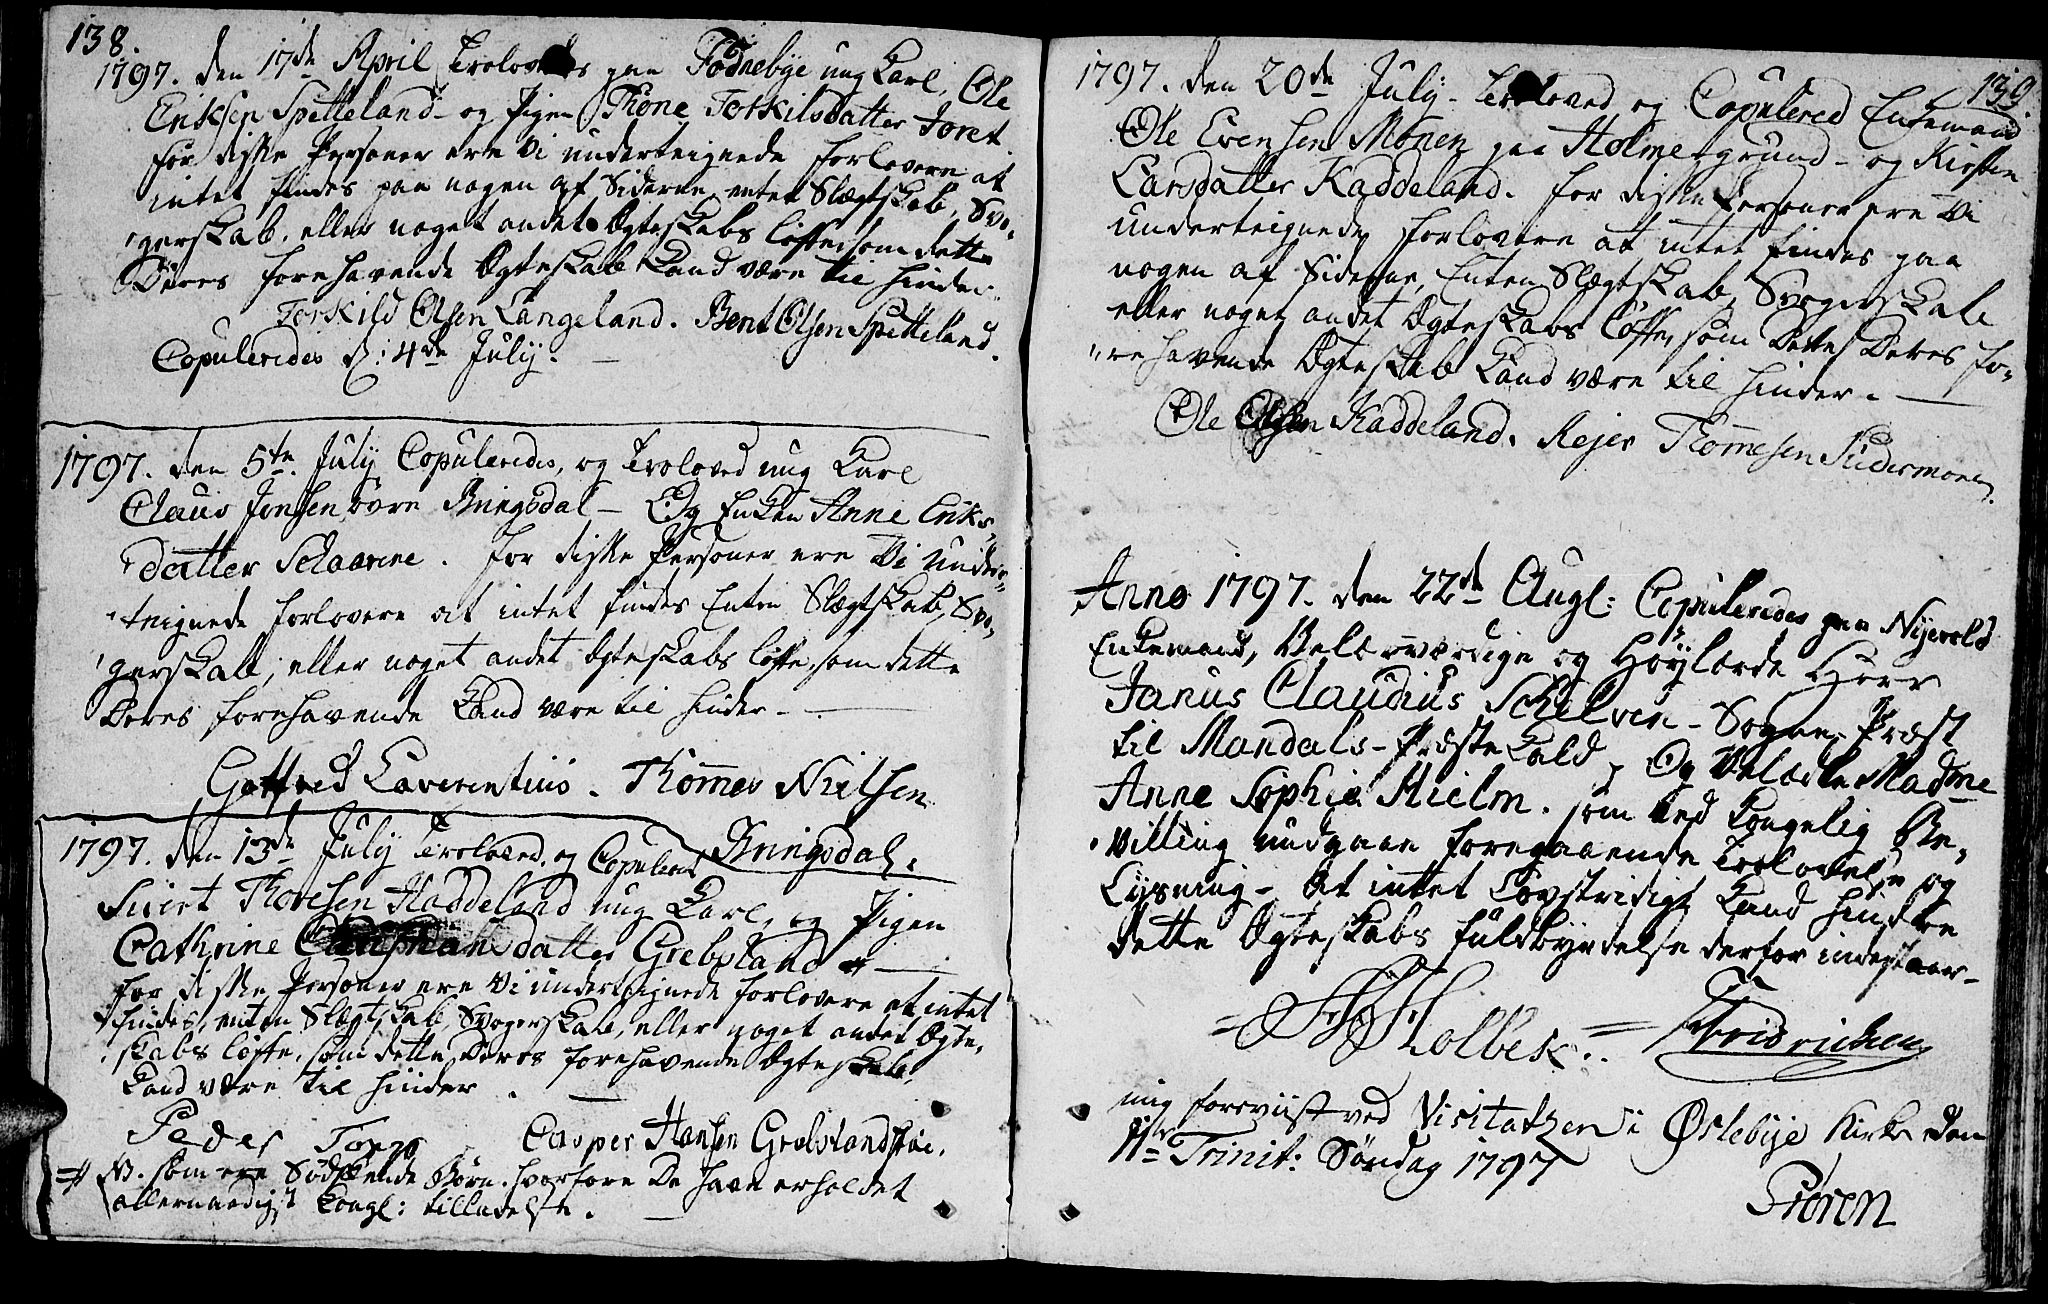 138.
1797. den 17de April Trolovedes paa Fodnebye ung Karl, Ole
Eriksen Spetteland - og Pigen Thone Torkilsdatter Foret.
for disse Personer ere Vi underteignede forlovere at
intet findes paa nogen af Siderne, enten Slægtskab, Svo-
gerskab, eller noget andet Ægteskabs løffte som dette
Deres forehavende Ægteskab kand være til hinder.
Torkild Olsen Langeland. Bent Olsen Spetteland.
Copuleredes d: 4de July. -
1797. den 5te July Copuleredes, og Troloved ung Karl
Claus Jensen Bringsdal - Og Enken Anne Eriks
datter Schaarene. for disse Personer ere Vi under-
teignede forlovere at intet findes Enten Slægtskab, Svo-
gerskab, eller noget andet Ægteskabs løffte, som dette
Deres forehavende kand være til hinder -
Gottfred Laverentius. Thommes Nielsen
Bringsdal.
1797. den 13de July Troloved, og Copulered
Siuert Thorsen Haddeland ung Karl, og Pigen
Cathrine datter Grebstand
for disse Personer ere Vi underteignede forlovere at intet
findes, enten Slægtskab, Svogerskab, eller noget andet Ægte-
skabs løffte, som dette Deres forehavende Ægteskab,
kand være til hinder.
Peder Casper Hansen Grebstand
NB. som ere Sødskende Børn. hvorfore De have erholdet
allernaadigst Kongl: tilladelse.
139
1797. den 20de July - Troloved og Copulered Enkemand
Ole Evensen Monen paa Holme-grund - og Kirsten
Larsdatter Kaddeland. for disse Personer ere Vi
underteignede forlovere at intet findes paa
nogen af Siderne, Enten Slægtskab, Svogerskab
eller noget andet Ægteskabs Løffte, som Dette Deres fo-
rehavende Ægteskab kand være til hinder. -
Ole Olsen Kaddeland. Rejer Thommesen Sudermonen.
Anno 1797. den 22de Augl: Copuleredes paa Nyevold
Enkemand, Velærværdige og Høylærde Herr
Janus Claudius Schelven - Sogne-Præst
til Mandals-Præstekald, Og Velædle Madme
Anne Sophie Hielm. som ved Kongelig Be-
villing undgaar foregaaende Trolovelse og
Lysning - At intet Lovstridigt kand hindre
dette Ægteskabs fuldbyrdelse derfor indestaar -
Holbek. Fridrichsen
mig foreviist ved Visitatzen i Øslebye Kirke den
11te Trinit: Søndag 1797